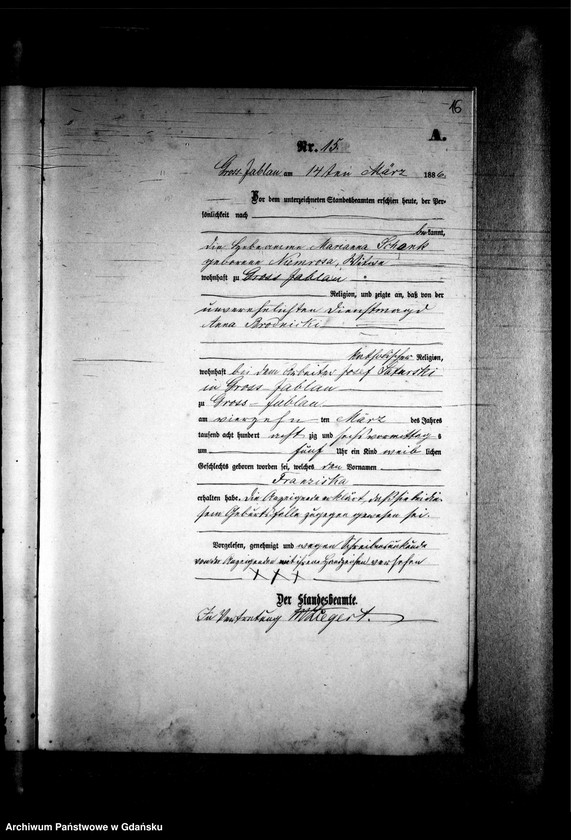 16
A.
Nr. 15.
Gross Jablau am 14ten März 1886.
Vor dem unterzeichneten Standesbeamten erschien heute, der Per-
sönlichkeit nach
bekannt,
die Hebeamme Marianna Schank
geborene Niemrosa, Witwe
wohnhaft zu Gross Jablau
Religion, und zeigte an, daß von der
unverehelichten Dienstmagd
Anna Brodnicki
katholischer Religion,
wohnhaft bei dem Arbeiter Josef
in Gross-Jablau
zu Gross-Jablau
am vierzehn ten März des Jahres
tausend acht hundert acht zig und sechs vormittags
um fünf Uhr ein Kind weib lichen
Geschlechts geboren worden sei, welches den Vornamen
Franziska
erhalten habe. Die Anzeigende erklärt, daß sie bei die-
sem Geburtsfalle zugegen gewesen sei.
Vorgelesen, genehmigt und wegen Schreibensunkunde
von der Anzeigenden mit ihrem Handzeichen versehen
+ + +
Der Standesbeamte.
In Vertretung
Archiwum Państwowe w Gdańsku